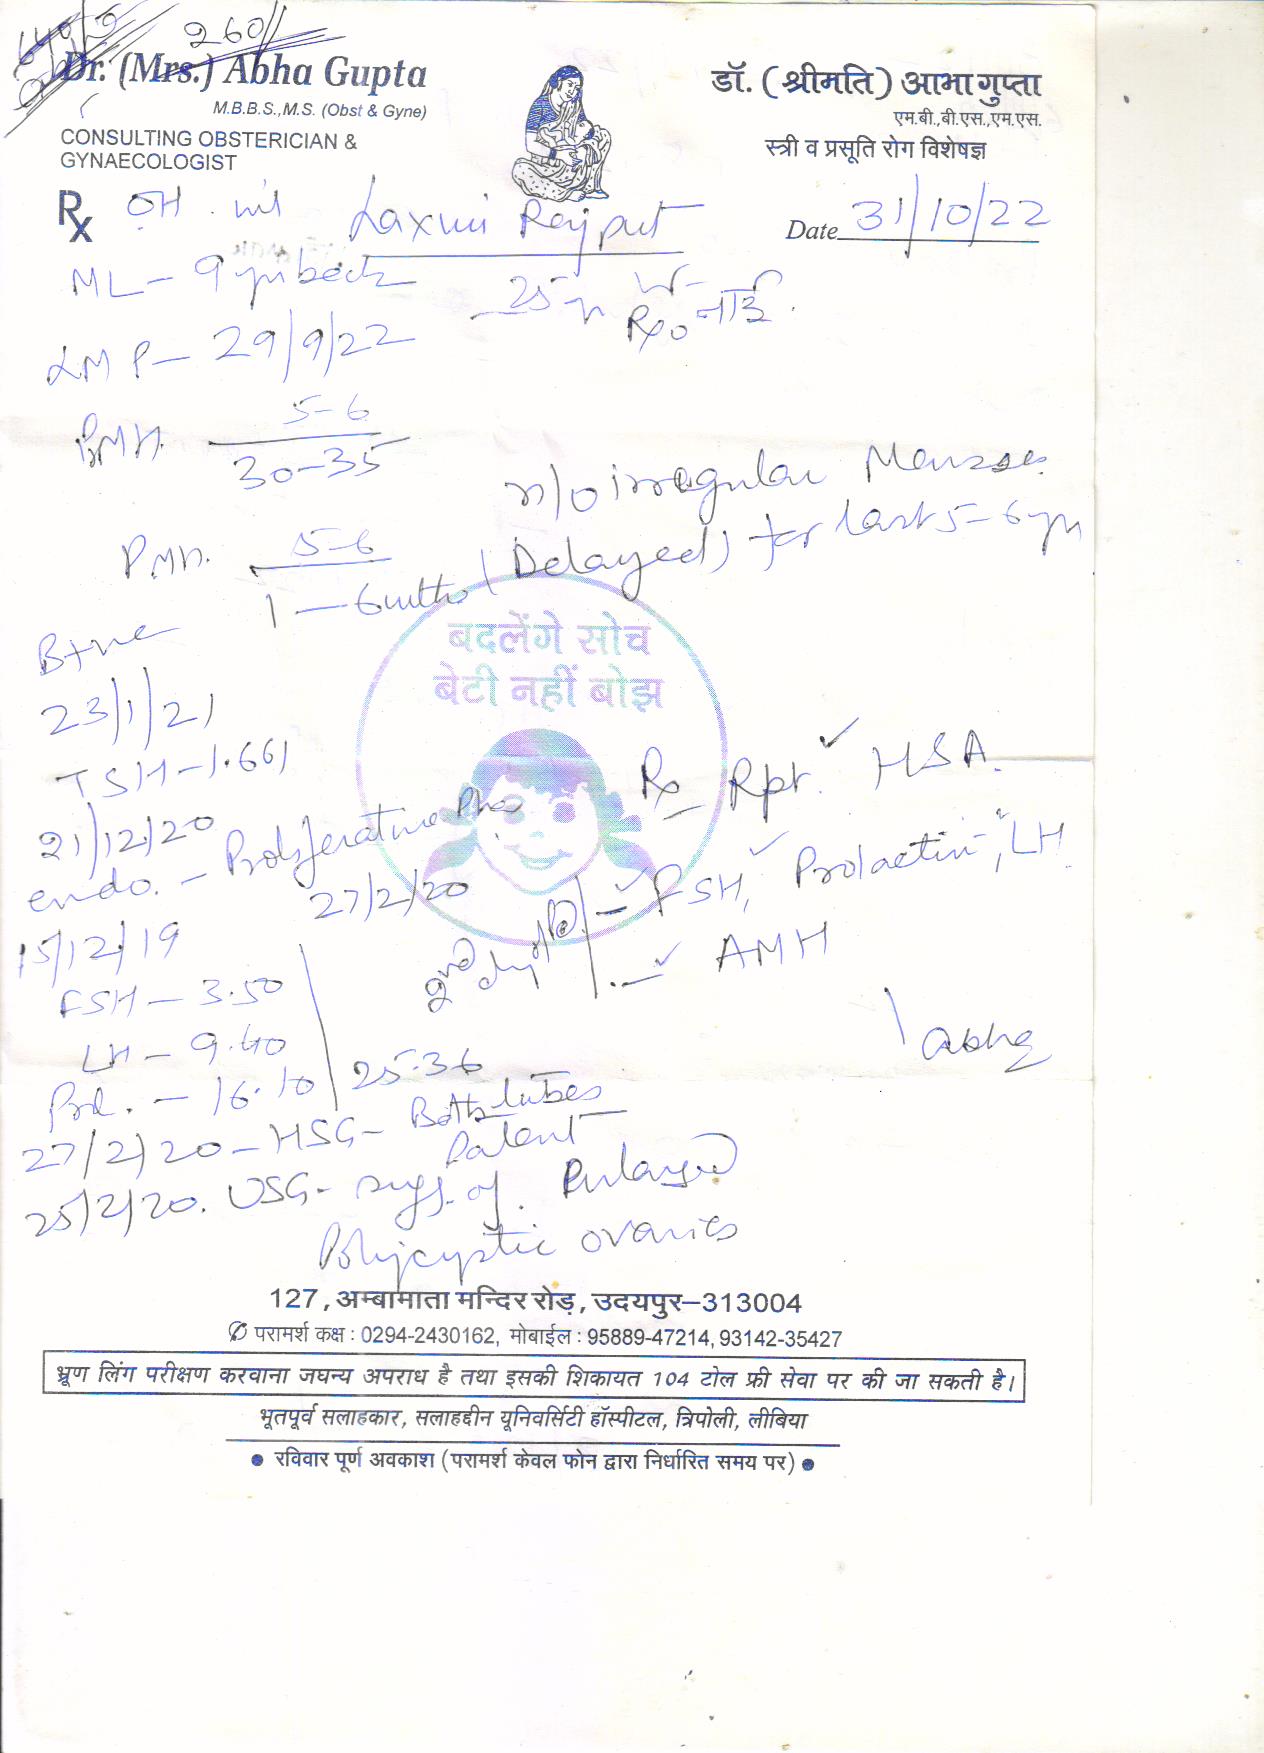 2601
Dr. (Mrs.) Abha Gupta
M.B.B.S.,M.S. (Obst & Gyne)
CONSULTING OBSTERICIAN &
GYNAECOLOGIST
डॉ. (श्रीमति) आभा गुप्ता
एम.बी.,बी.एस.,एम.एस.
स्त्री व प्रसूति रोग विशेषज्ञ
Rx OH. nil Laxmi Rajput
Date 31/10/22
ML- 9 yrs back
25 yr
LMP- 29/9/22
5-6
30-35
H/o irregular Menses
PMH. 5-6
1 - 6mths (Delayed) for last 5-6 yr
B+ve
23/1/21
TSH-1.661
Rx Rpt. HSA.
21/12/20
endo. - Proliferative Phase
27/2/20
2nd day - FSH, Prolactin, LH
- AMH
15/12/19
FSH - 3.50
LH - 9.40
Prl. - 16.10 25.36
Abha
27/2/20 - HSG- Both tubes
Patent
25/2/20. USG- sugg. of. Enlarged
Polycyptic ovaries
बदलेंगे सोच
बेटी नहीं बोझ
127, अम्बामाता मन्दिर रोड़, उदयपुर-313004
परामर्श कक्ष : 0294-2430162, मोबाईल : 95889-47214, 93142-35427
भ्रूण लिंग परीक्षण करवाना जघन्य अपराध है तथा इसकी शिकायत 104 टोल फ्री सेवा पर की जा सकती है।
भूतपूर्व सलाहकार, सलाहद्दीन यूनिवर्सिटी हॉस्पीटल, त्रिपोली, लीबिया
● रविवार पूर्ण अवकाश (परामर्श केवल फोन द्वारा निर्धारित समय पर) ●